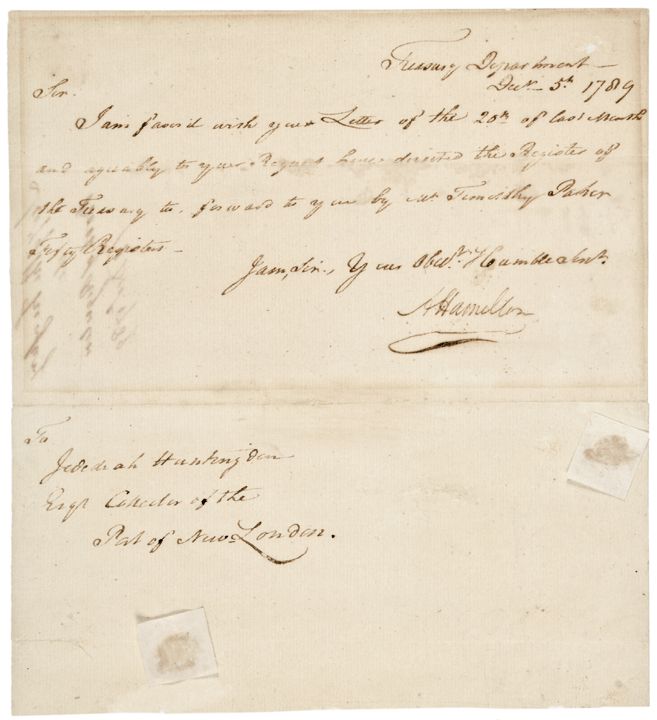 Treasury Department
Decr. 5th. 1789
Sir.
I am favor'd with your Letter of the 20th of last Month
and agreeably to your Request have directed the Register of
the Treasury to forward to you by Mr. Timothy Parker
Fifty Registers
I am, Sir, Your Obedt. Humble Servt.
A Hamilton
To
Jedediah Huntington
Esqr Collector of the
Port of New London.